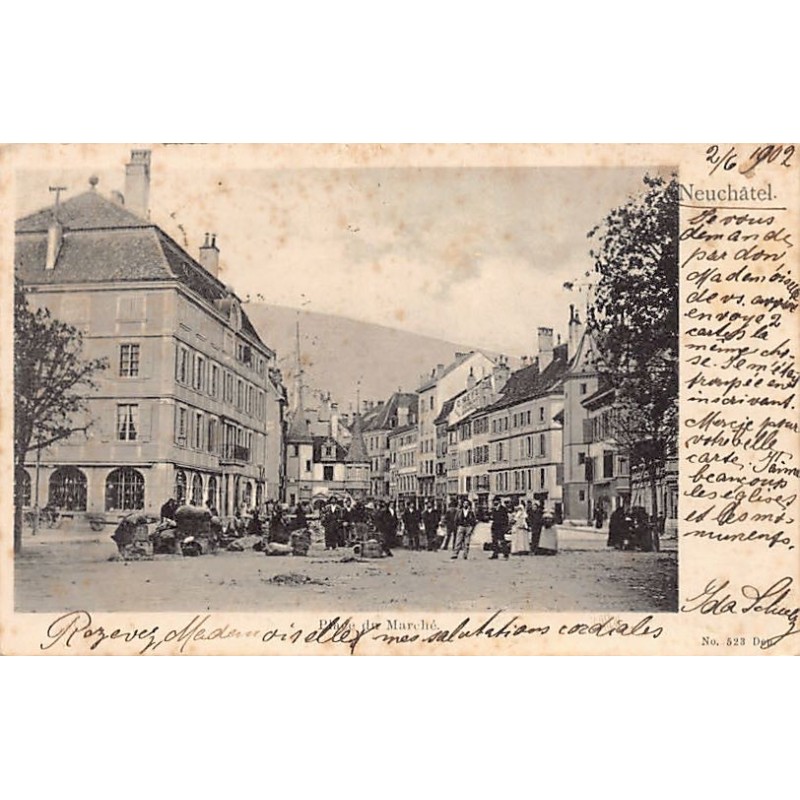 2/6 1902
Neuchâtel.
Je vous
demande
pardon
Mademoiselle
de vs. avoir
envoyé 2
cartes la
même cho-
se. Je m'étais
trompée en
inscrivant.
Merci pour
votre belle
carte. J'aime
beaucoup
les églises
et les mo-
numents.
Ida Schulz
Place du Marché.
Rezevez, Mademoiselle, mes salutations cordiales
No. 523 Dep.